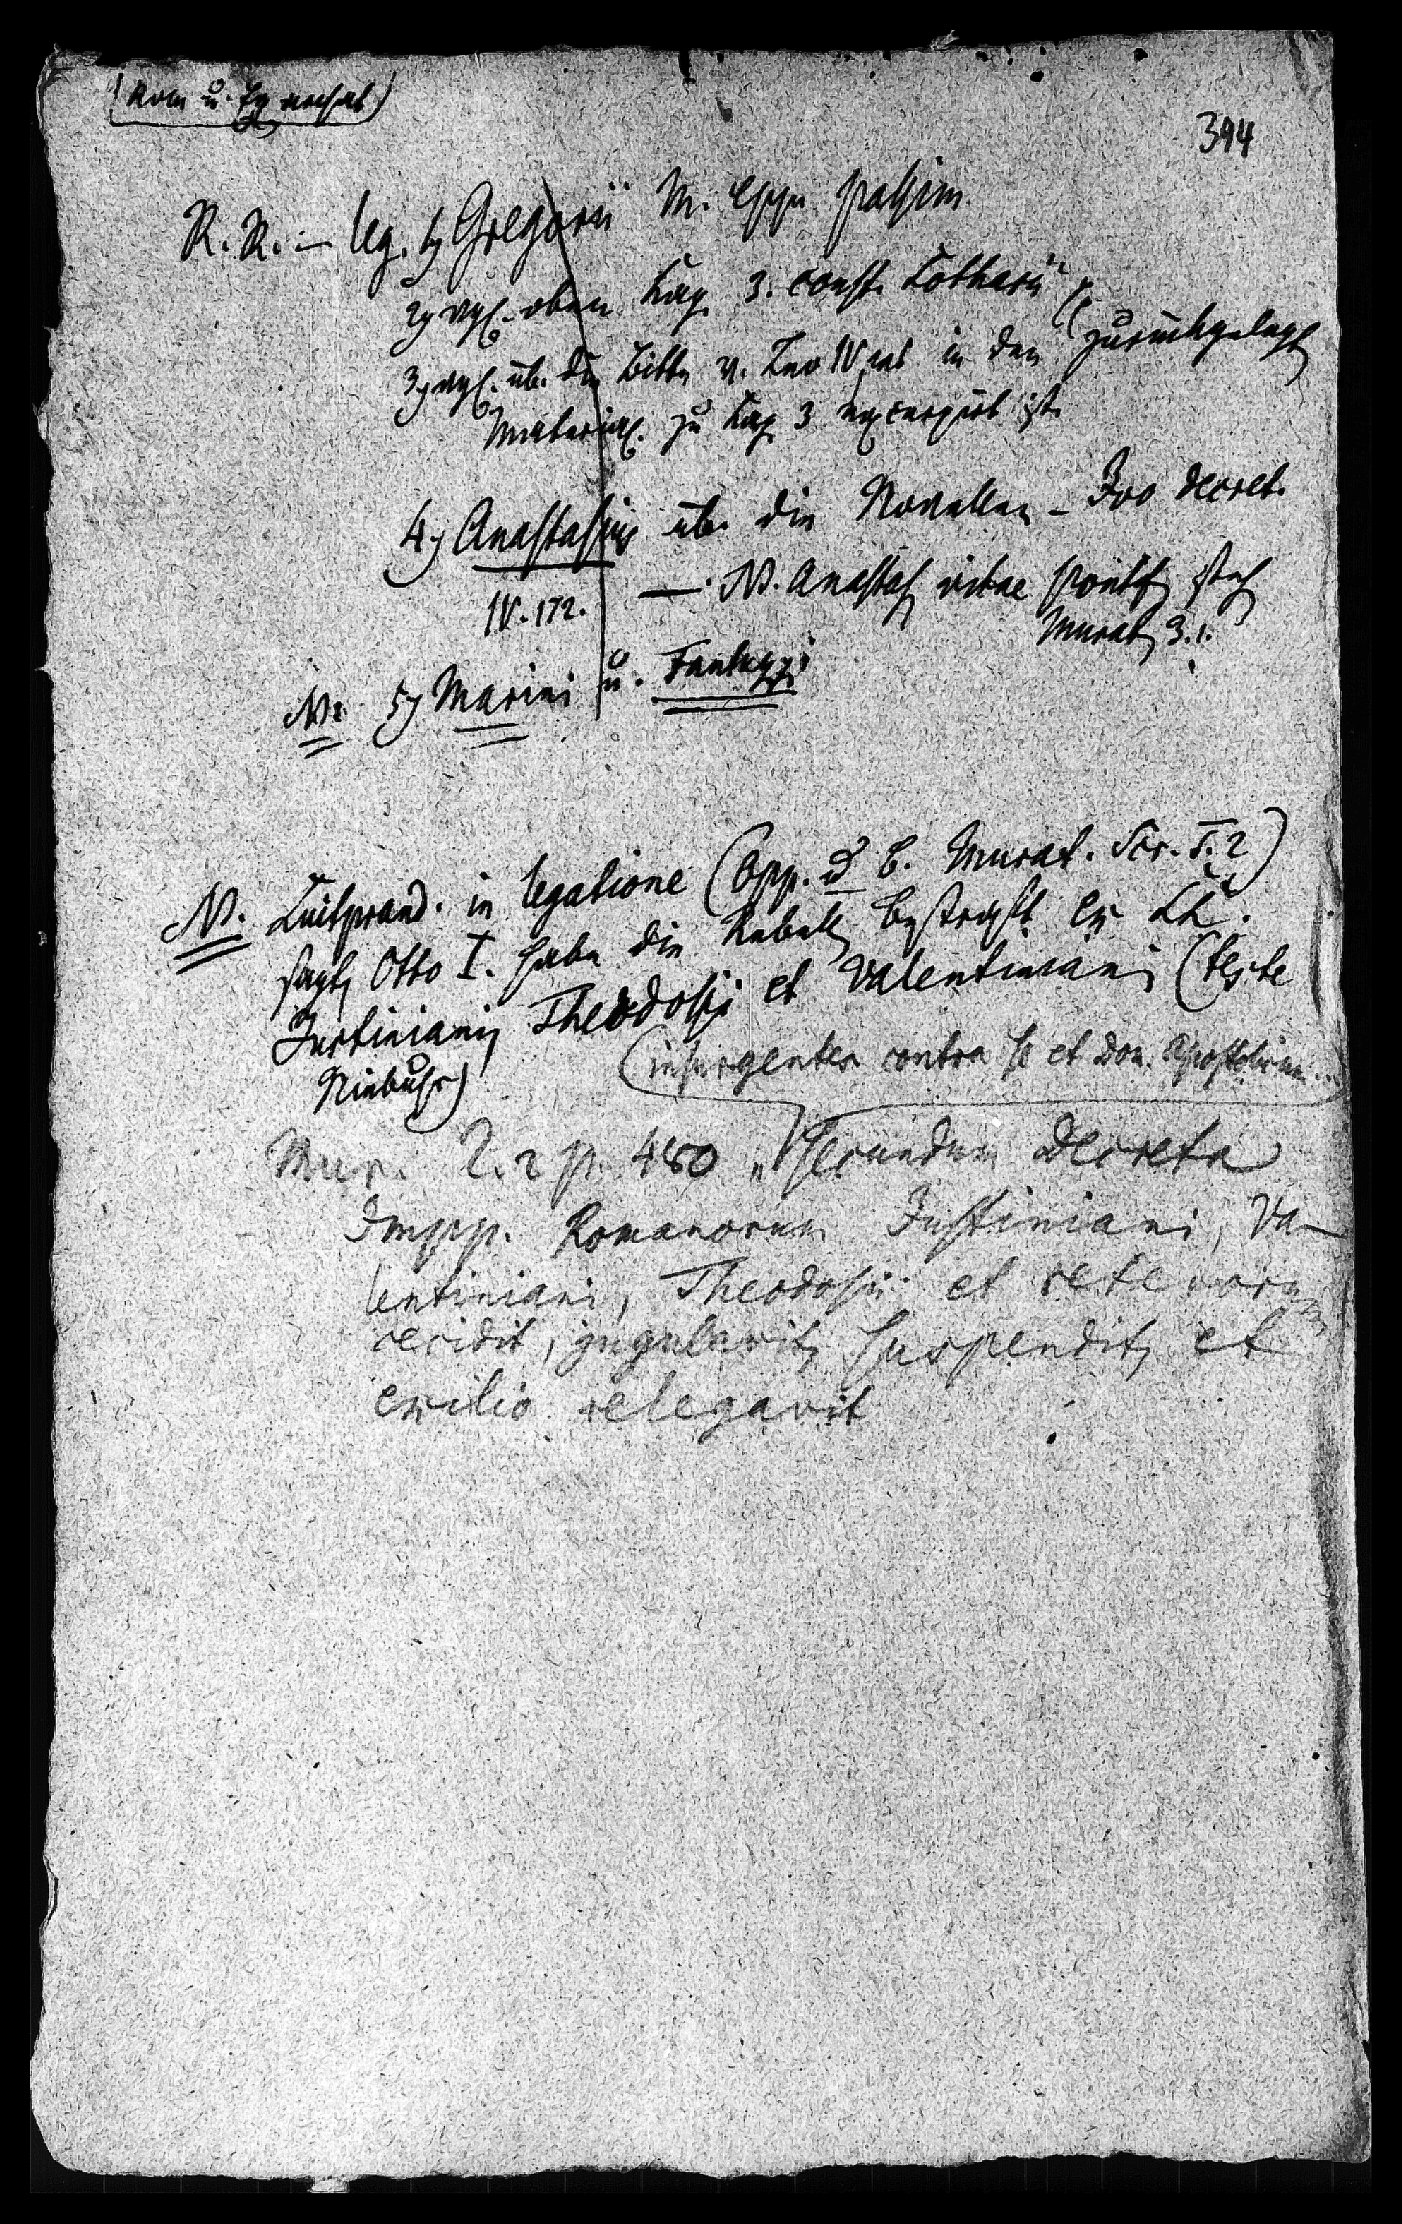 (Rom u. Exarchat)
394
R. R. — leg. 1) Gregorii M. epp. passim
2) vgl. oben Kap. 3. const. Lotharii
3) vgl. üb. die Bitte v. Leo IV was in den zurückgelegt
Material. zu Kap 3 excerpirt ist
4) Anastasius üb. die Novellen – Ivo decret.
IV. 172. — N. Anastas vitae pontif steh
Murat 3.1.
N: 5) Marini u. Fantuzzi
N. Luitprand. in legatione (Opp. & b. Murat. Scr. T. 2)
sagt, Otto I. habe die Rebellen bestraft ex LL.
Justiniani Theodosii et Valentiniani (teste
Niebuhr)
(insurgentes contra se et dom. Apostolicum...
Mur. T. 2 p. 480 „secundum decreta
Impp. Romanorum Justiniani, Va-
lentiniani, Theodosii et ceterorum
cecidit, jugulavit, suspendit, et
exilio relegavit